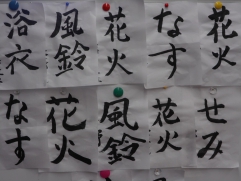 花火
なす
花火
風鈴
浴衣
せみ
花火
風鈴
花火
なす